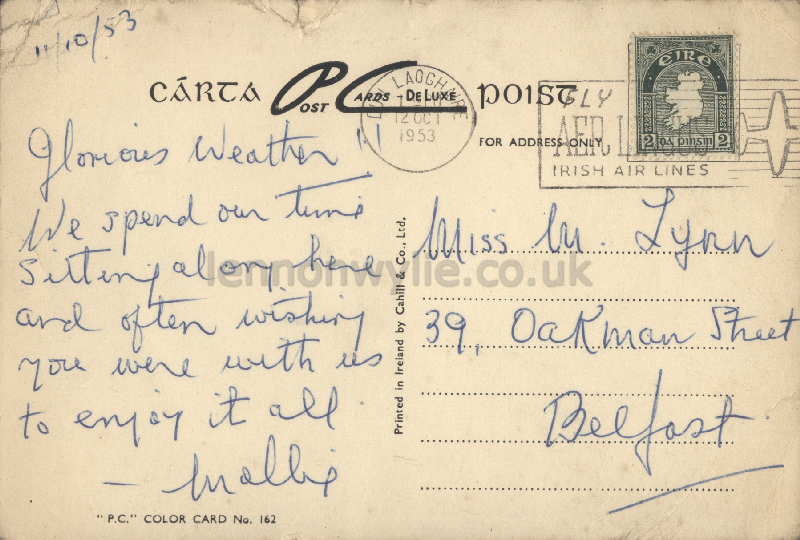 11/10/53
CÁRTA
POST CARDS - DE LUXE
POIST
FOR ADDRESS ONLY
LAOGHAIRE
12 OCT
1953
FLY
AER LINGUS
IRISH AIR LINES
EIRE
2 DÁ PINSIN 2
Glorious Weather!!
We spend our time
sitting along here
and often wishing
you were with us
to enjoy it all
— Mollie
Printed in Ireland by Cahill & Co., Ltd.
Miss M. Lynn
39, Oakman Street
Belfast
"P.C." COLOR CARD No. 162
lennonwylie.co.uk